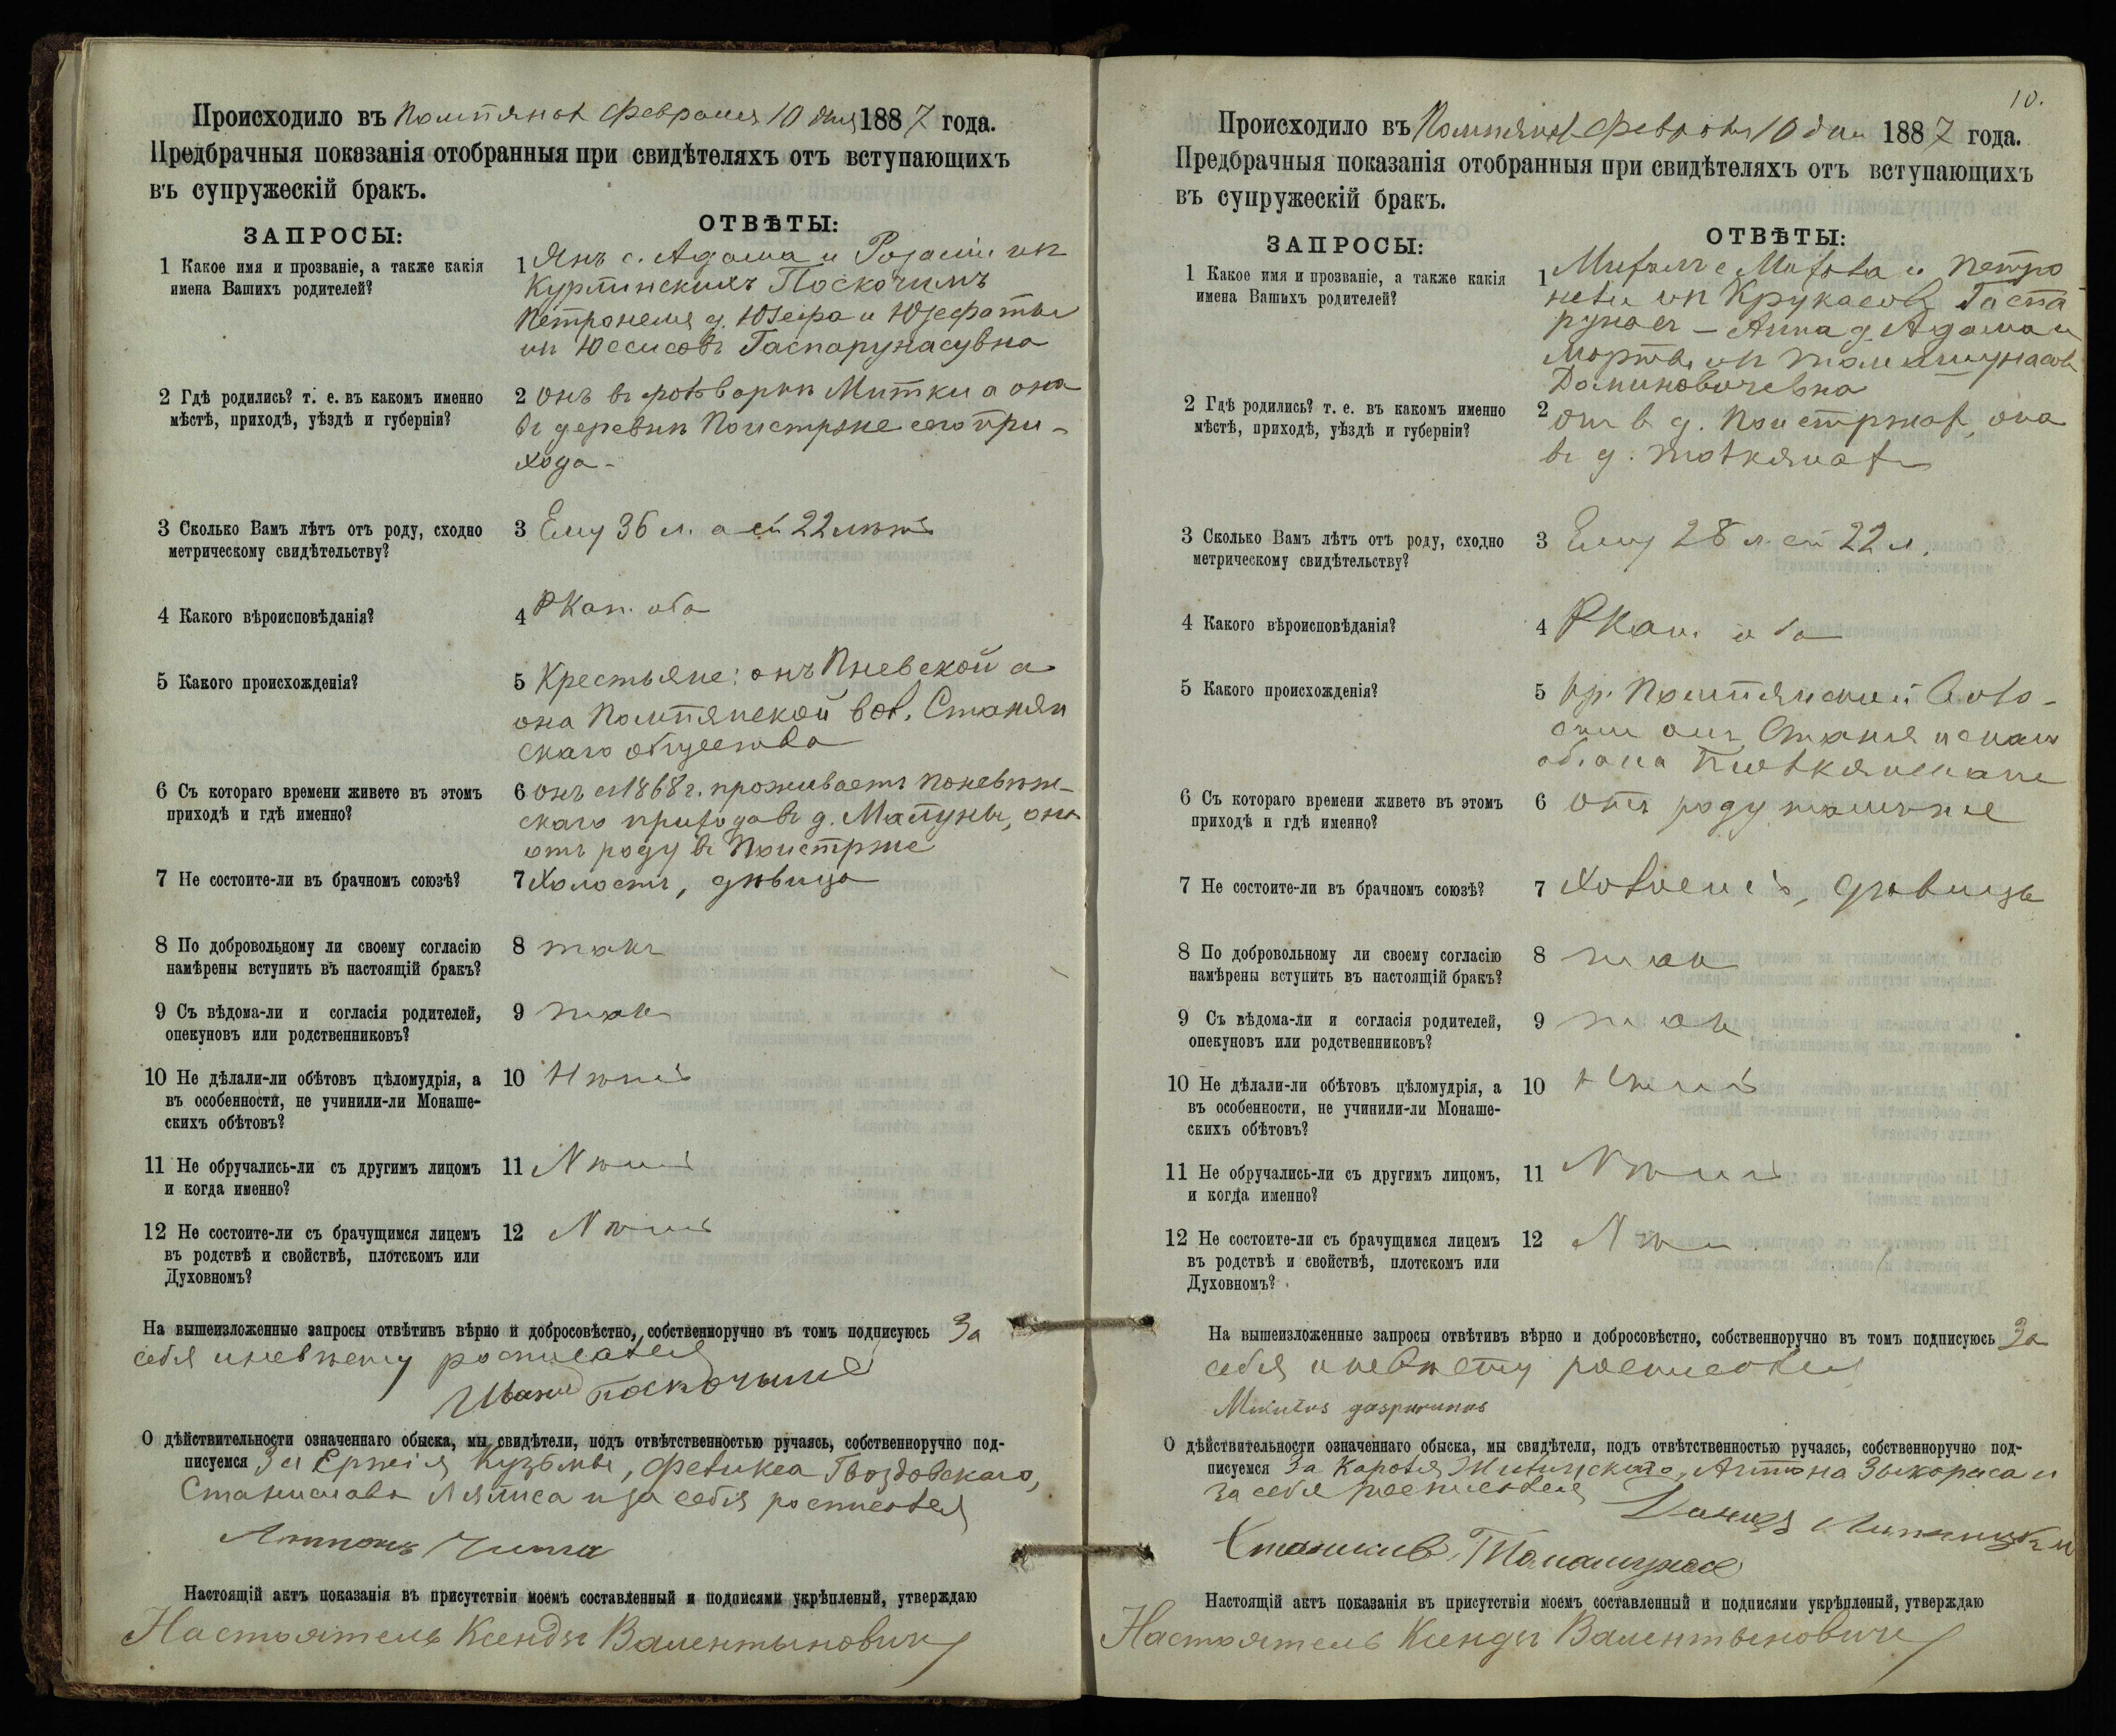 Происходило въ Помпянах февраля 10 дня 1887 года.
Предбрачныя показанія отобранныя при свидѣтеляхъ отъ вступающихъ
въ супружескій бракъ.
ЗАПРОСЫ:
ОТВѢТЫ:
1 Какое имя и прозваніе, а также какія
имена Вашихъ родителей?
1 Янъ с. Адама и Розаліи из
Куртинскихъ Поскочимъ
Петронеля д. Юзефа и Юзефаты
из Юссисовъ Гаспарунасувна
2 Гдѣ родились? т. е. въ какомъ именно
мѣстѣ, приходѣ, уѣздѣ и губерніи?
2 онъ въ фольварки Митки а она
въ деревни Поистрже сего при-
хода-
3 Сколько Вамъ лѣтъ отъ роду, сходно
метрическому свидѣтельству?
3 Ему 36 л. а ей 22 лѣтъ
4 Какого вѣроисповѣданія?
4 РКат. оба
5 Какого происхожденія?
5 Крестьяне: онъ Пневской а
она Помпянской вол. Станян
скаго общества
6 Съ котораго времени живете въ этомъ
приходѣ и гдѣ именно?
6 онъ съ 1868 г. проживаетъ Поневѣж-
скаго прихода въ д. Мапуны, она
отъ роду въ Поистрже
7 Не состоите-ли въ брачномъ союзѣ?
7 Холостъ, дѣвица
8 По добровольному ли своему согласію
намѣрены вступить въ настоящій бракъ?
8 такъ
9 Съ вѣдома-ли и согласія родителей,
опекуновъ или родственниковъ?
9 такъ
10 Не дѣлали-ли обѣтовъ цѣломудрія, а
въ особенности, не учинили-ли Монаше-
скихъ обѣтовъ?
10 Нѣтъ
11 Не обручались-ли съ другимъ лицомъ
и когда именно?
11 Нѣтъ
12 Не состоите-ли съ брачущимся лицемъ
въ родствѣ и свойствѣ, плотскомъ или
Духовномъ?
12 Нѣтъ
На вышеизложенные запросы отвѣтивъ вѣрно и добросовѣстно, собственноручно въ томъ подписуюсь За
себя и невѣсту росписался
Иванъ Поскочимъ
О дѣйствительности означеннаго обыска, мы свидѣтели, подъ отвѣтственностью ручаясь, собственноручно под-
писуемся За Кузьмы, Феликса Гвоздовскаго,
Станислава и за себя росписался
Антонъ
Настоящій актъ показанія въ присутствіи моемъ составленный и подписями укрѣпленый, утверждаю
Настоятель Ксендзъ Валентыновичъ
10.
Происходило въ Помпянах февраля 10 дня 1887 года.
Предбрачныя показанія отобранныя при свидѣтеляхъ отъ вступающихъ
въ супружескій бракъ.
ЗАПРОСЫ:
ОТВѢТЫ:
1 Какое имя и прозваніе, а также какія
имена Вашихъ родителей?
1 Михалъ с Михала и Петро
нели из Крукасовъ Гаспа
рунасъ - Анна д. Адама и
Марты из
Доминовичевна
2 Гдѣ родились? т. е. въ какомъ именно
мѣстѣ, приходѣ, уѣздѣ и губерніи?
2 онъ в д. Поистржах, она
въ д.
3 Сколько Вамъ лѣтъ отъ роду, сходно
метрическому свидѣтельству?
3 Ему 28 л. ей 22 л.
4 Какого вѣроисповѣданія?
4 РКат. оба
5 Какого происхожденія?
5 кр. Помпянской воло-
сти онъ Станянскаго
об. она
6 Съ котораго времени живете въ этомъ
приходѣ и гдѣ именно?
6 отъ роду тамъ же
7 Не состоите-ли въ брачномъ союзѣ?
7 Холостъ, дѣвица
8 По добровольному ли своему согласію
намѣрены вступить въ настоящій бракъ?
8 так
9 Съ вѣдома-ли и согласія родителей,
опекуновъ или родственниковъ?
9 так
10 Не дѣлали-ли обѣтовъ цѣломудрія, а
въ особенности, не учинили-ли Монаше-
скихъ обѣтовъ?
10 Нѣтъ
11 Не обручались-ли съ другимъ лицомъ,
и когда именно?
11 Нѣтъ
12 Не состоите-ли съ брачущимся лицемъ
въ родствѣ и свойствѣ, плотскомъ или
Духовномъ?
12 Нѣт
На вышеизложенные запросы отвѣтивъ вѣрно и добросовѣстно, собственноручно въ томъ подписуюсь За
себя и невѣсту росписался
Mikutos gasparunas
О дѣйствительности означеннаго обыска, мы свидѣтели, подъ отвѣтственностью ручаясь, собственноручно под-
писуемся За Кароля Антона и
за себя росписался

Настоящій актъ показанія въ присутствіи моемъ составленный и подписями укрѣпленый, утверждаю
Настоятель Ксендзъ Валентыновичъ